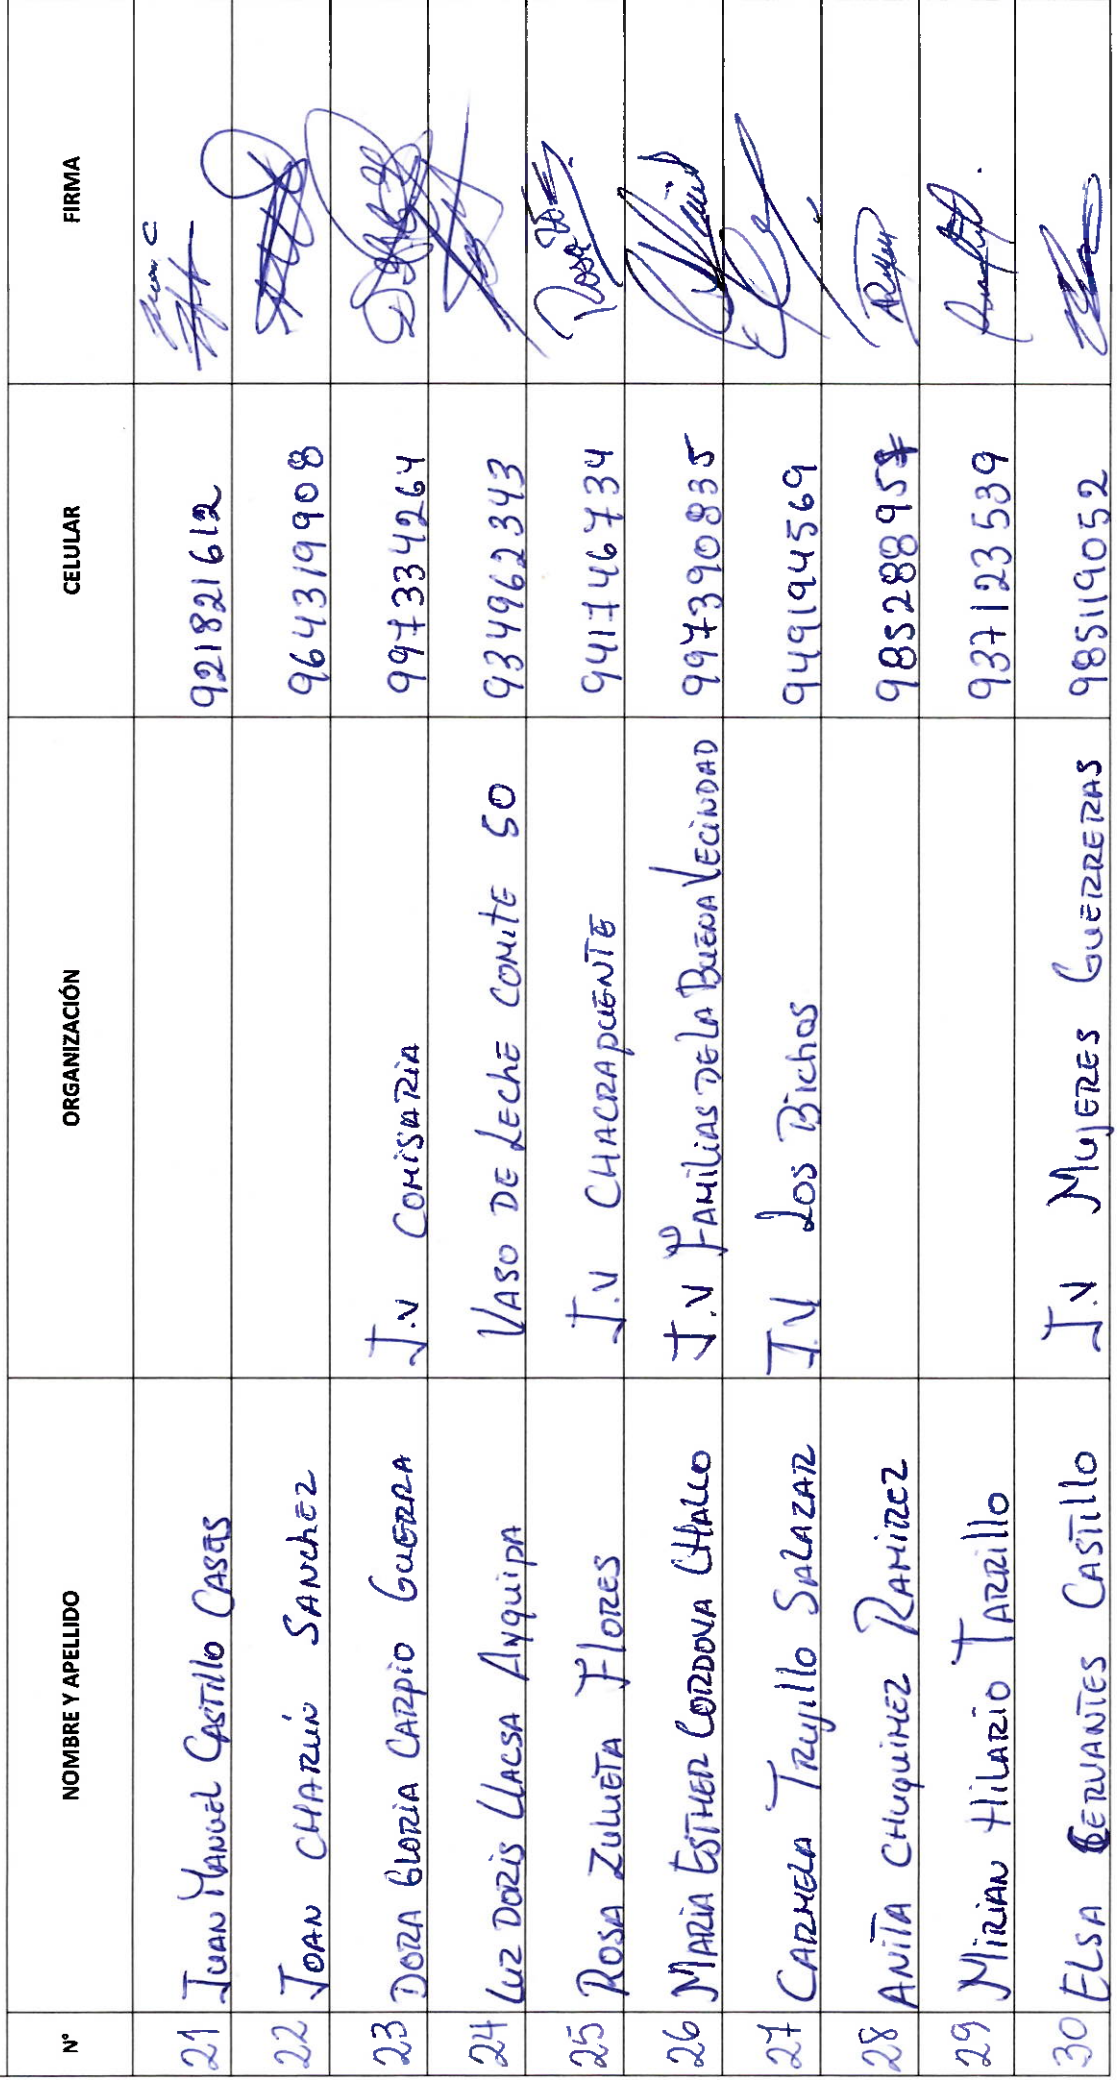 N° NOMBRE Y APELLIDO ORGANIZACIÓN CELULAR FIRMA
21 JUAN MANUEL CASTILLO CASAS 921821612
22 JOAN CHARÚN SANCHEZ 964319908
23 DORA GLORIA CARPIO GUERRA J.V COMISARIA 997334264
24 LUZ DORIS LLACSA AYQUIPA VASO DE LECHE COMITE 50 934962343
25 ROSA ZULUETA FLORES J.V CHACRAPUENTE 941746734
26 MARIA ESTHER CORDOVA CHALLO J.V FAMILIAS DE LA BUENA VECINDAD 997390835
27 CARMELA TRUJILLO SALAZAR J.V LOS BICHOS 949194569
28 ANITA CHUQUIMEZ RAMIREZ 98528895
29 MIRIAN HILARIO TARRILLO 937123539
30 ELSA CERVANTES CASTILLO J.V MUJERES GUERRERAS 985119052